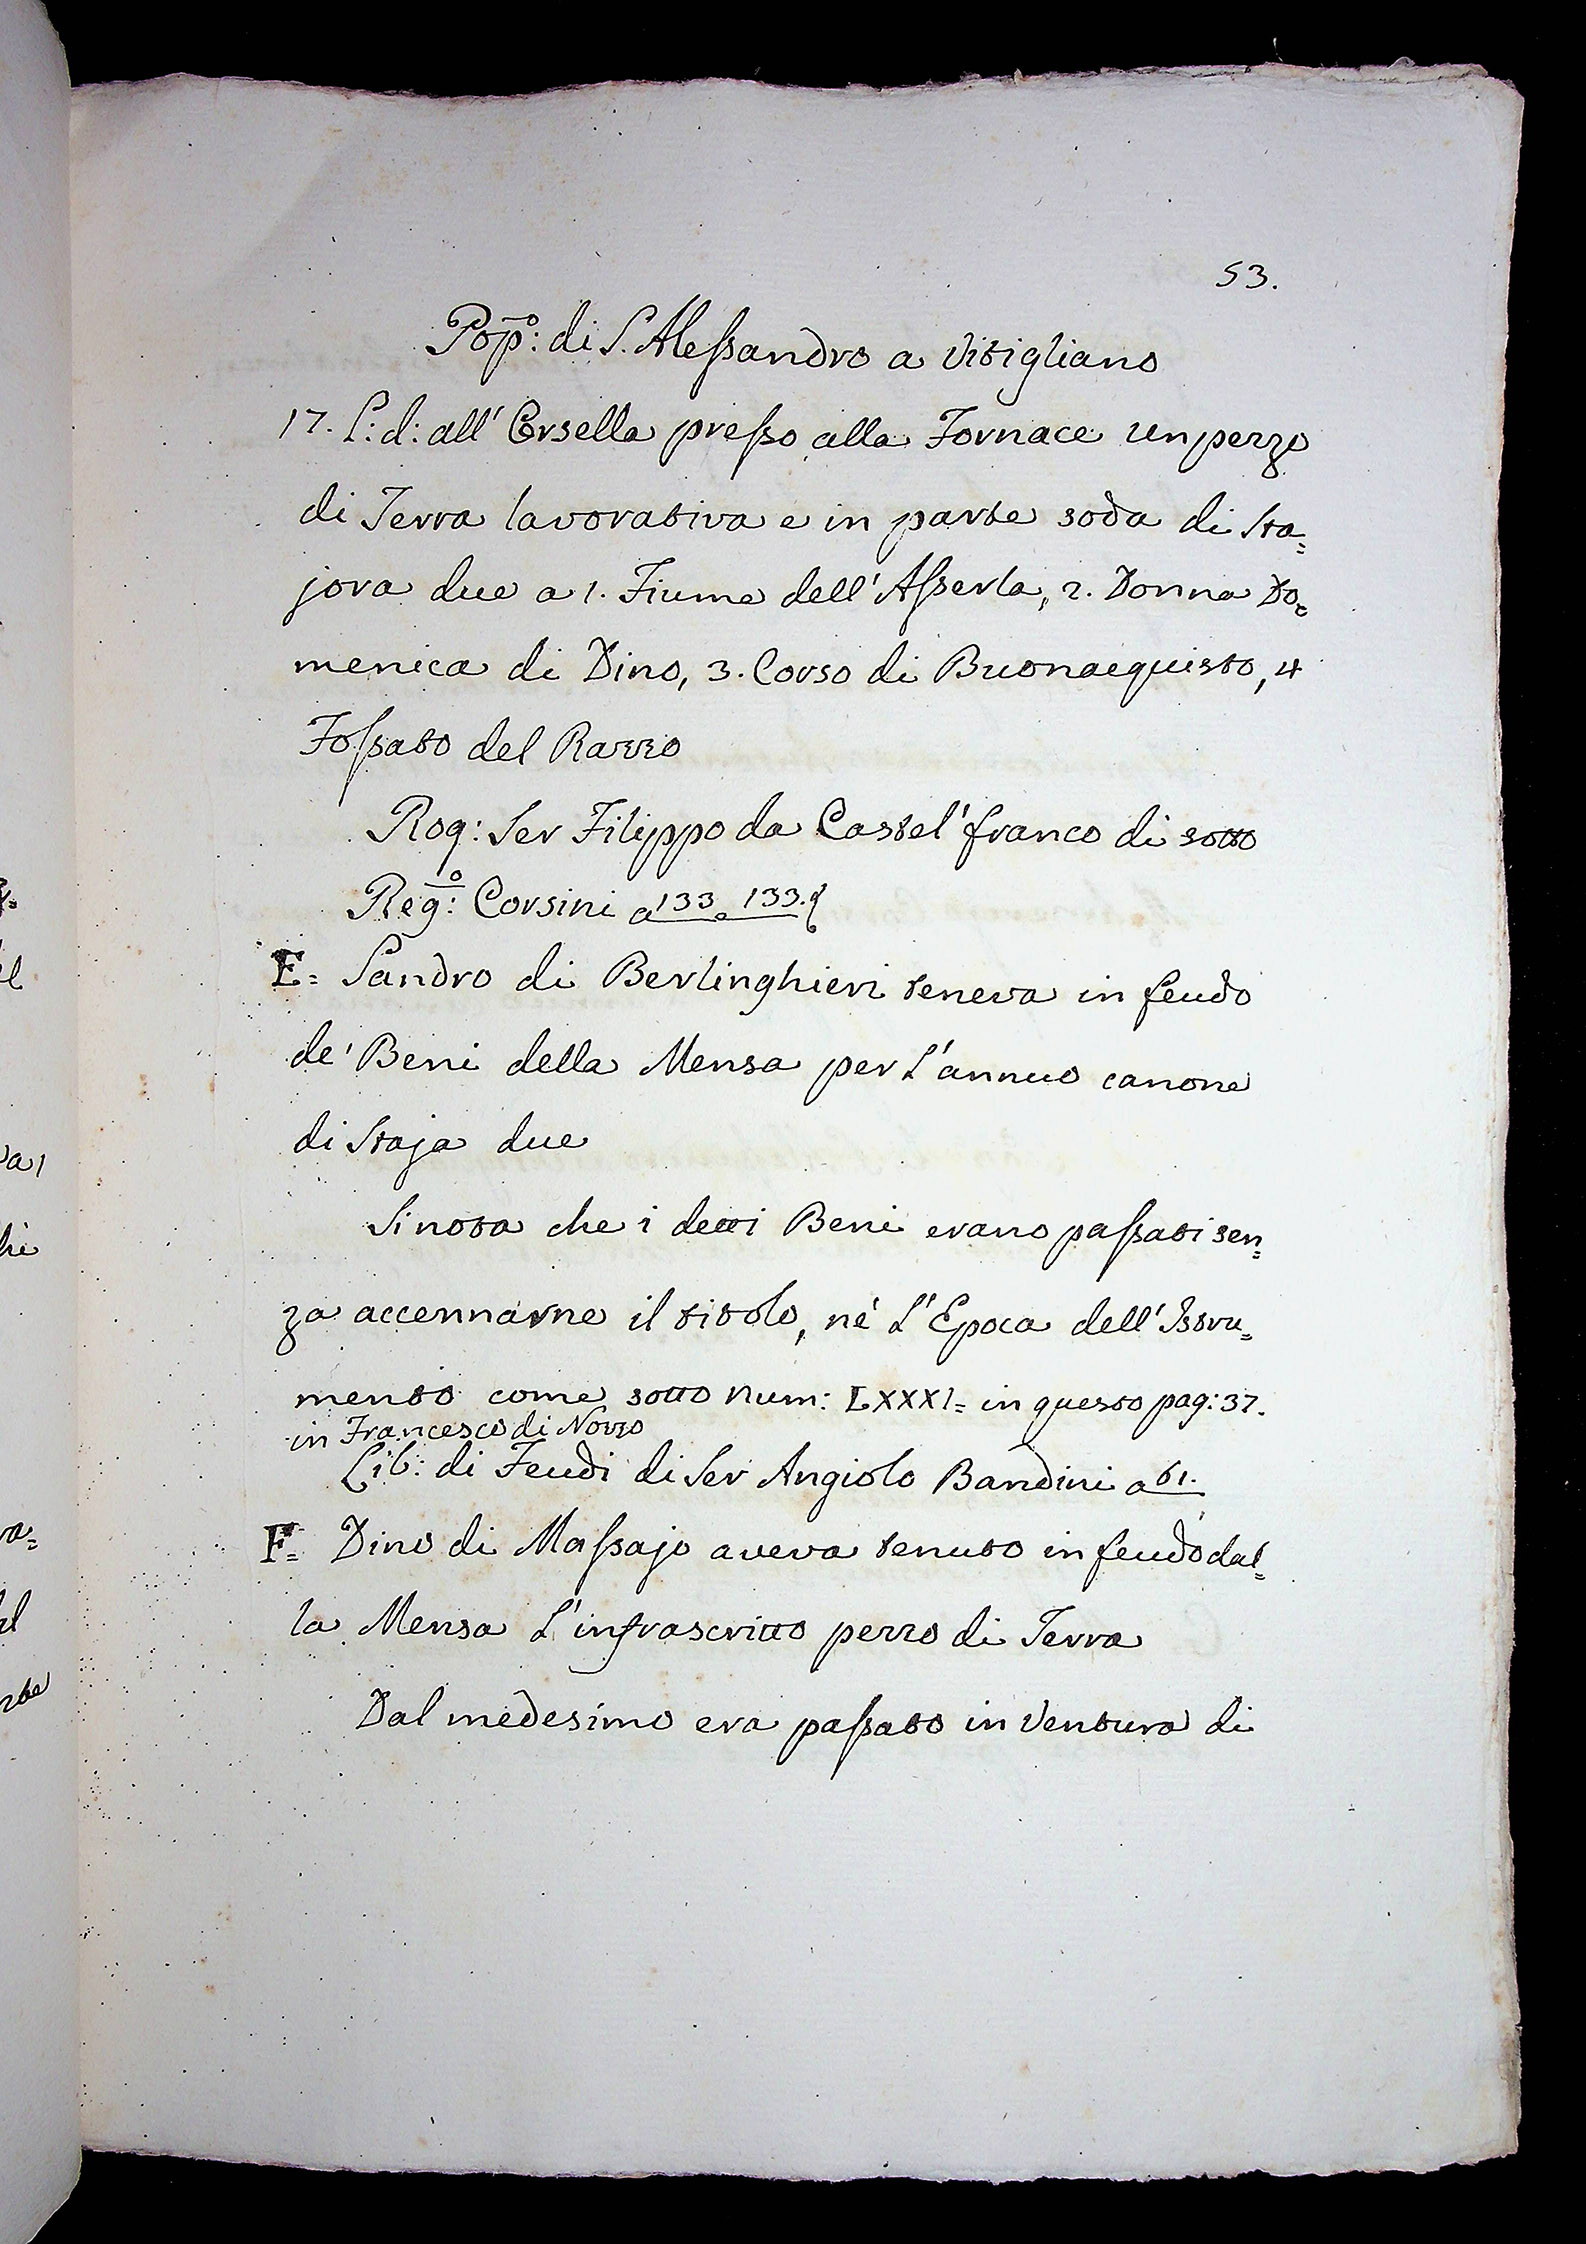 53.
Pop:º di S. Alessandro a Vitigliano
17. L: d: all' Corsella presso alla Fornace un pezzo
di Terra lavorativa e in parte soda di Sta=
jora due a 1. Fiume dell' Asserla, 2. Donna Do=
menica di Dino, 3. Corso di Buonacquisto, 4
Fossato del Razzo
Rog: Ser Filippo da Castel' franco di sotto
Reg:º Corsini a 133 a 133.
E= Sandro di Berlinghieri teneva in feudo
de' Beni della Mensa per L'annuo canone
di Staja due
Si nota che i detti Beni erano passati sen=
za accennarne il titolo, nè L'Epoca dell' Istru=
mento come sotto num: LXXXI= in questo pag: 37.
in Francesco di Nozzo
Lib: di Feudi di Ser Angiolo Bandini a 61.
F= Dino di Massajo aveva tenuto in feudo dal=
la Mensa L'infrascritto pezzo di Terra
Dal medesimo era passato in Ventura di